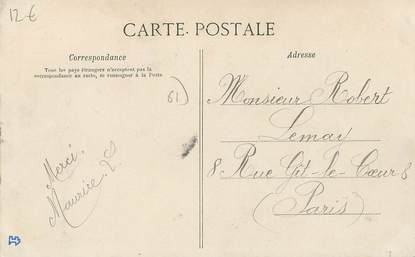 12€
CARTE POSTALE
Correspondance
Tous les pays étrangers n'acceptent pas la
correspondance au recto, se renseigner à la Poste
61)
Merci.
Maurice
Adresse
Monsieur Robert
Lemay
8 Rue Git-le-Cœur 8
(Paris)